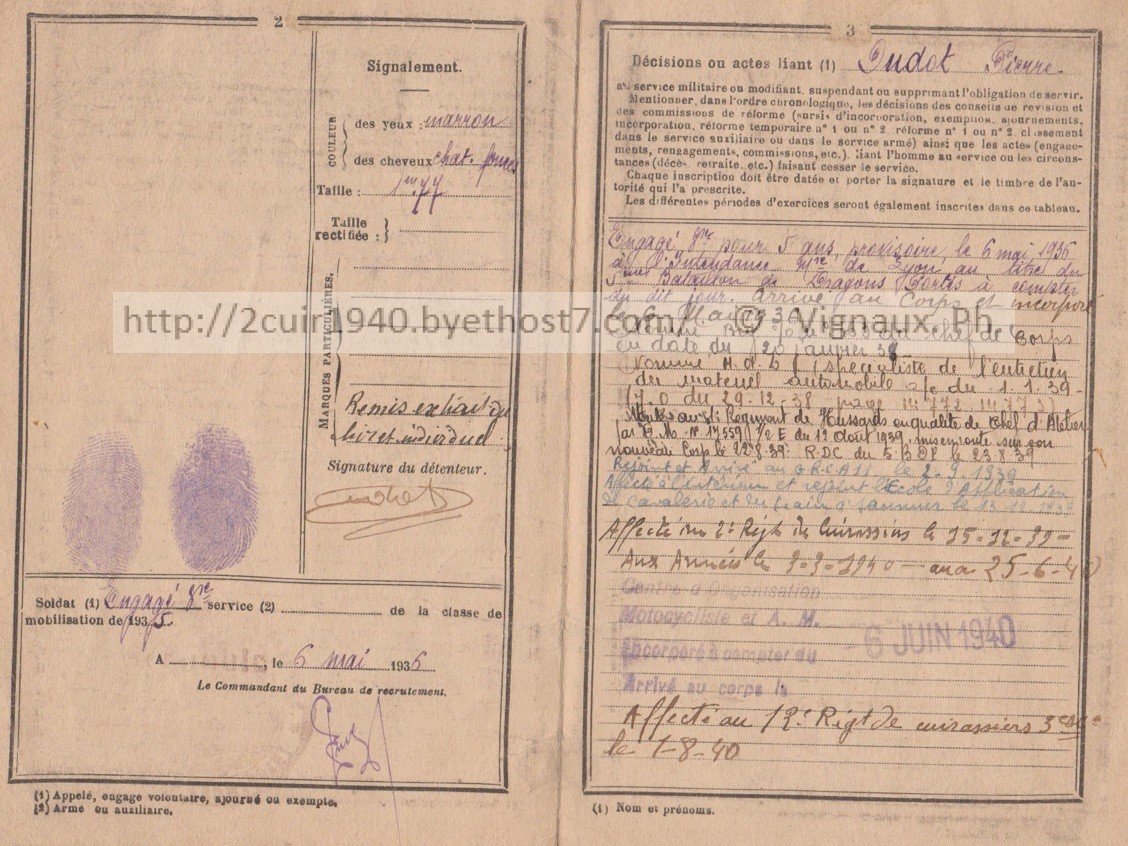 2
Signalement.
COULEUR
des yeux : marron
des cheveux chat. foncé
Taille : 1m77
Taille
rectifiée :
MARQUES PARTICULIÈRES.
Remis extrait du
livret individuel
Signature du détenteur.
Soldat (1) Engagé vre service (2) de la classe de
mobilisation de 1935.
A , le 6 mai 1936
Le Commandant du Bureau de recrutement.
(1) Appelé, engagé volontaire, ajourné ou exempté.
(2) Armé ou auxiliaire.
3
Décisions ou actes liant (1) Oudot Pierre.
au service militaire ou modifiant, suspendant ou supprimant l'obligation de servir.
Mentionner, dans l'ordre chronologique, les décisions des conseils de revision et
des commissions de réforme (sursis d'incorporation, exemption, ajournements,
incorporation, réforme temporaire n° 1 ou n° 2, réforme n° 1 ou n° 2, classement
dans le service auxiliaire ou dans le service armé) ainsi que les actes (engage-
ments, rengagements, commissions, etc.), liant l'homme au service ou les circons-
tances (décès, retraite, etc.) faisant cesser le service.
Chaque inscription doit être datée et porter la signature et le timbre de l'au-
torité qui l'a prescrite.
Les différentes périodes d'exercices seront également inscrites dans ce tableau.
Engagé vre pour 5 ans, provisoire, le 6 mai 1936
à l'Intendance Mre de Lyon au titre du
5me Bataillon de Dragons Portés à compter
du dit jour. arrivé au Corps et incorporé
le 6 Mai 1936
http://2cuir1940.byethost7.com/ © Vignaux. Ph.
du chef de Corps
en date du 20 janvier 38
Nommé M.d.L. (spécialiste de l'entretien
du matériel automobile) du 1.1.39
(J.O du 29-12-38 - page 14.772
Régiment de Hussards en qualité de Chef d'Atelier
12 Août 1939. mis en route sur son
nouveau Corps le 22.8.39. R.D.C du 5 B.D.P le 23.8.39
Rejoint et arrivé au G.R.C.A 11 le 2-9 1939
Affecté à l'intérieur et rejoint l'Ecole d'Application
de cavalerie et du train à Saumur le 13 11 1939
Affecté au 2e Régt de Cuirassiers le 15-12-39-
Aux Armées le 9-2-1940 - au 25-6-40
Centre d'Organisation
Motocycliste et A. M.
Incorporé à compter du - 6 JUIN 1940
Arrivé au corps le
Affecté au 12e Rigt de cuirassiers 3e
le 1-8-40
(1) Nom et prénoms.